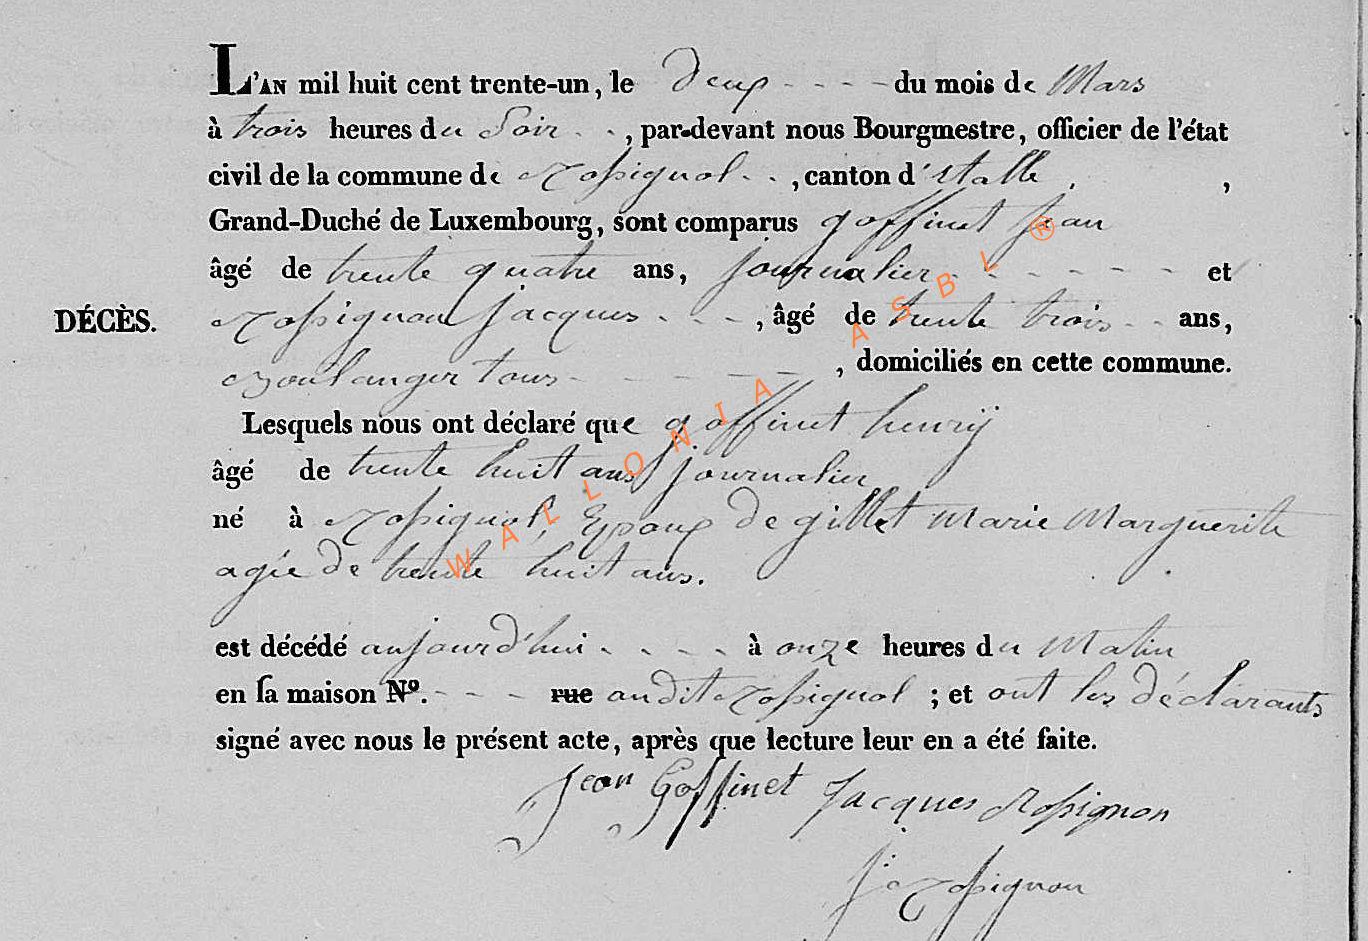 L'AN mil huit cent trente-un, le Deux - - - - du mois de Mars
à trois heures du Soir - - , par-devant nous Bourgmestre, officier de l'état
civil de la commune de Rossignol - - , canton d'Etalle , ,
Grand-Duché de Luxembourg, sont comparus goffinet Jean
âgé de trente quatre ans, journalier - - - - - - et
DÉCÈS.
Rossignon Jacques - - - , âgé de trente trois - - ans,
Boulanger tous - - - - - - , domiciliés en cette commune.
Lesquels nous ont déclaré que goffinet henrÿ
âgé de trente huit ans journalier
né à Rossignol, Epoux de gillet Marie Marguerite
agée de trente huit ans.
est décédé aujourd'hui - - - - à onze heures du Matin
en sa maison N°. - - - rue audit Rossignol ; et ont les déclarants
signé avec nous le présent acte, après que lecture leur en a été faite.
Jean Goffinet Jacques Rossignon
J: Rossignon
WALLONIA ASBL ®